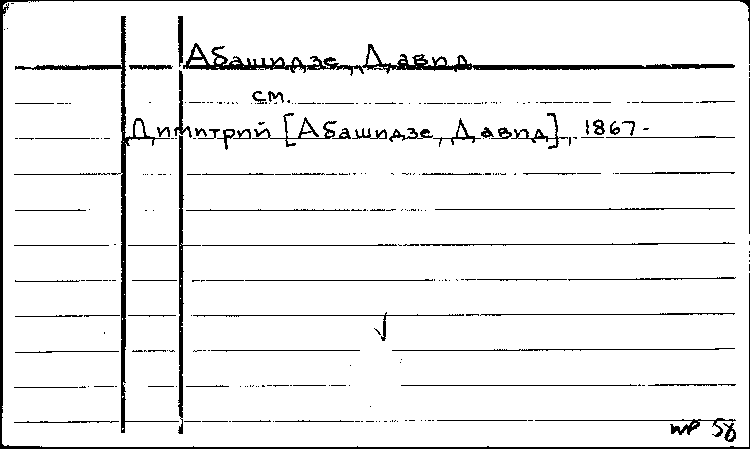 Абашидзе, Давид
см.
Димитрий [Абашидзе, Давид], 1867-